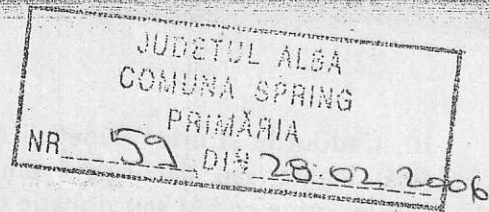 JUDEȚUL ALBA
COMUNA SPRING
PRIMĂRIA
NR 59 DIN 28.02.2006